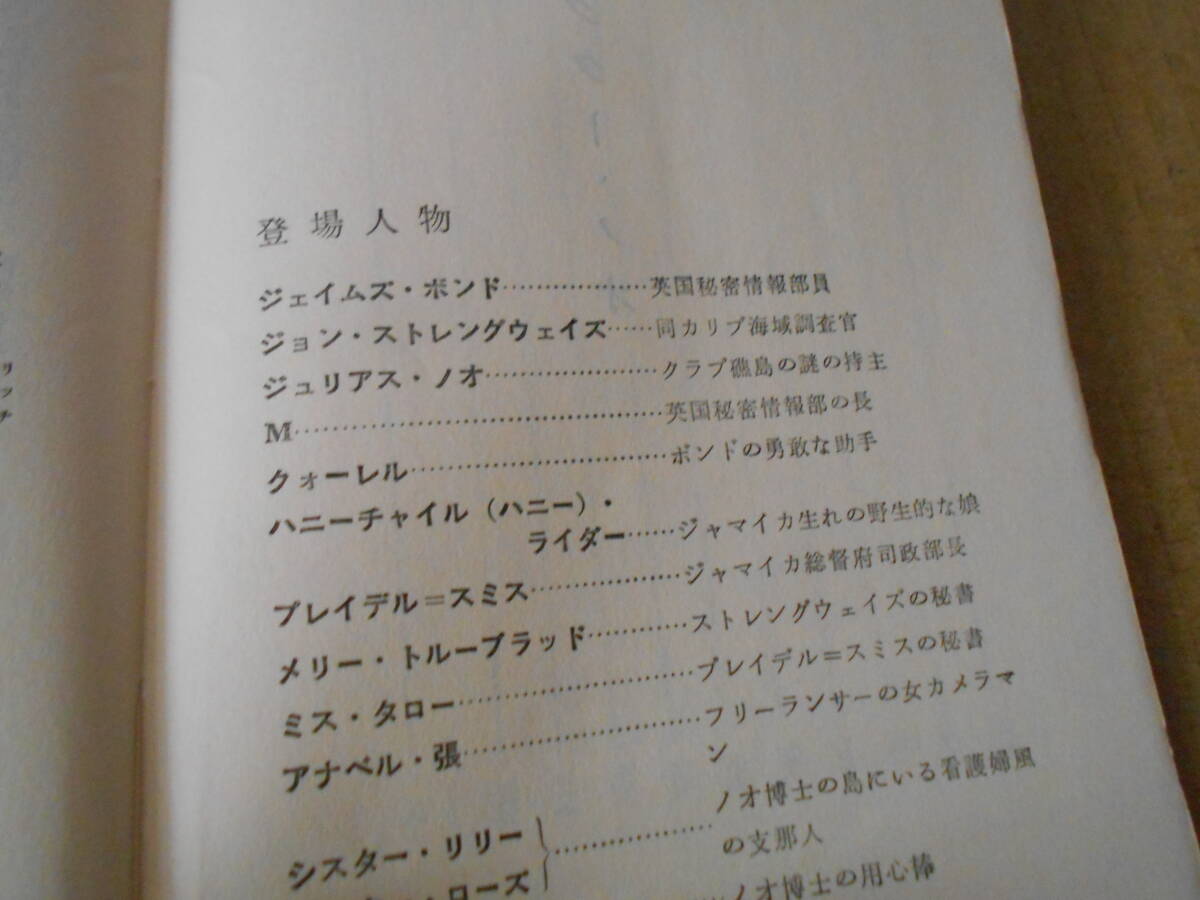 登場人物
ジェイムズ・ボンド………………英国秘密情報部員
ジョン・ストレングウェイズ……同カリブ海域調査官
ジュリアス・ノオ…………………クラブ礁島の謎の持主
M……………………………………英国秘密情報部の長
クォーレル…………………………ボンドの勇敢な助手
ハニーチャイル（ハニー）・
ライダー……ジャマイカ生れの野生的な娘
プレイデル＝スミス………………ジャマイカ総督府司政部長
メリー・トルーブラッド…………ストレングウェイズの秘書
ミス・タロー………………………プレイデル＝スミスの秘書
アナベル・張………………………フリーランサーの女カメラマ
ン
シスター・リリー
ローズ
………………ノオ博士の島にいる看護婦風
の支那人
ノオ博士の用心棒
リ
ッ
チ